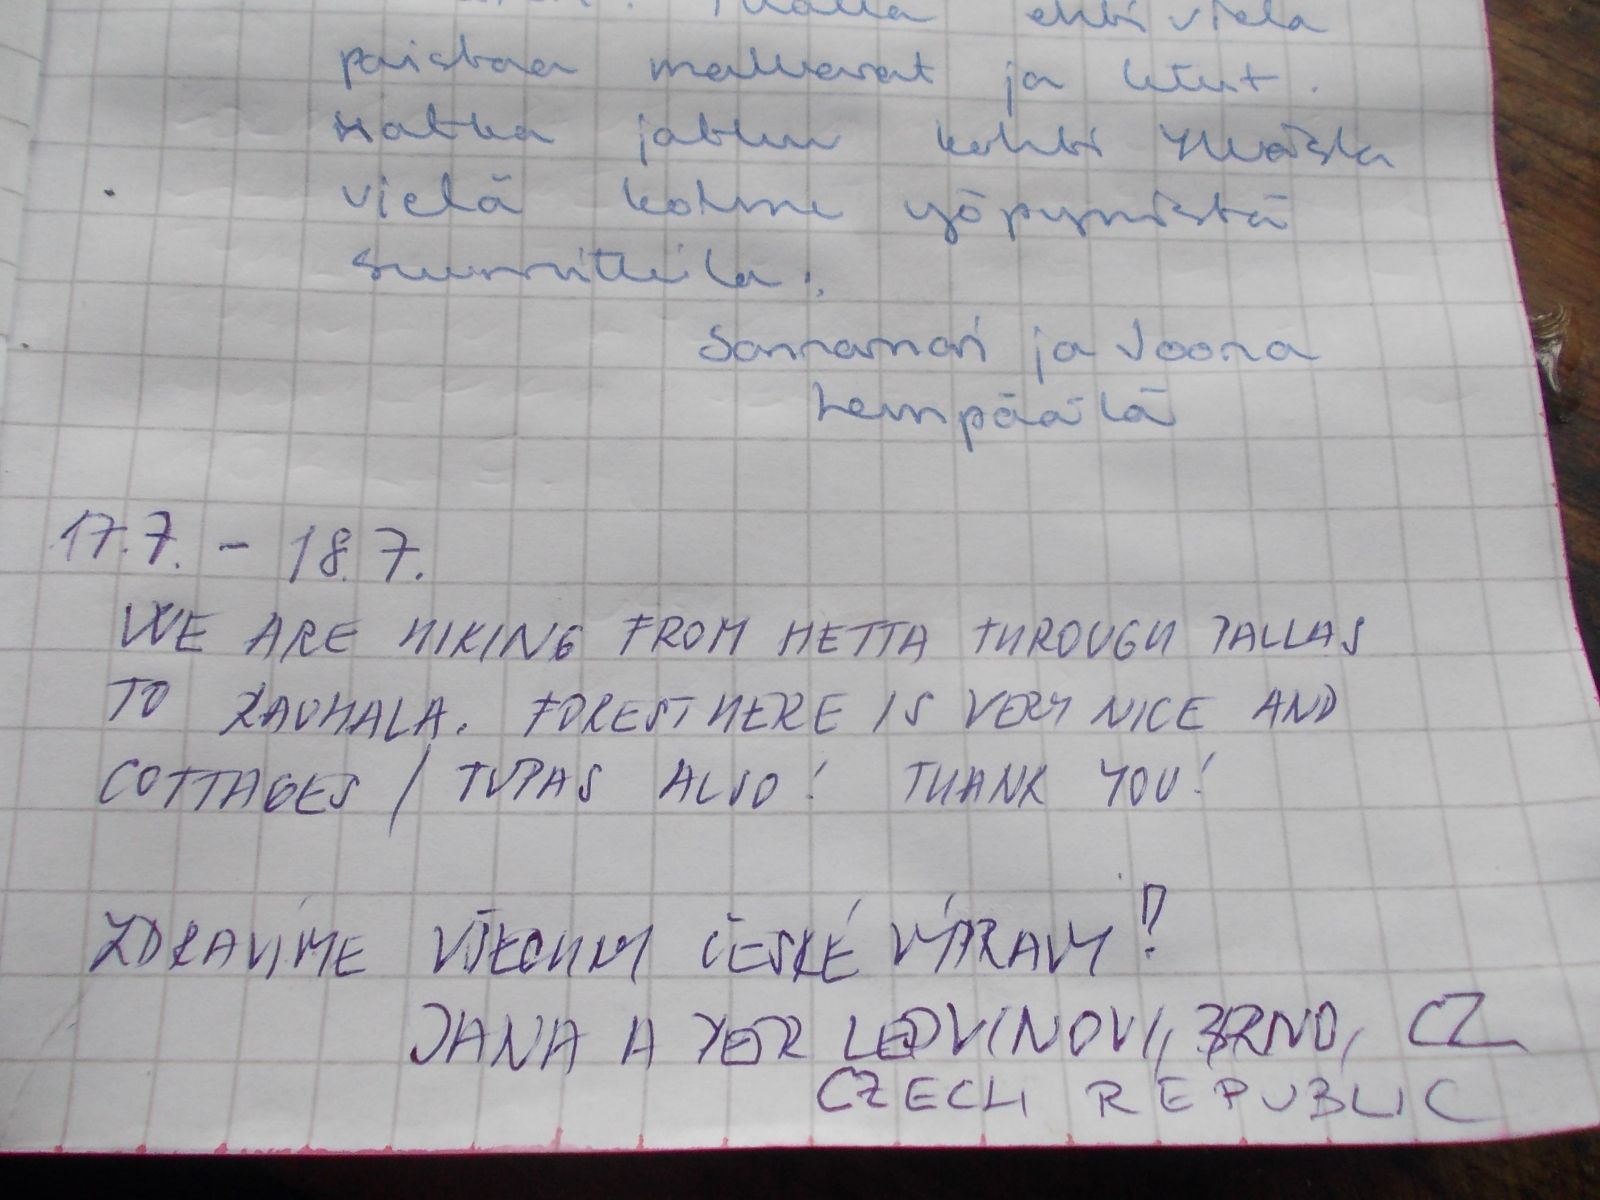 ehti vielä
paistaa makkarat ja letut.
Matka jatkuu kohti Ylläistä
vielä kolme yöpymistä
suunnitteilla.
Sannamari ja Joona
Lempäälä
17.7. - 18.7.
WE ARE HIKING FROM HETTA THROUGH PALLAS
TO RAUHALA. FOREST HERE IS VERY NICE AND
COTTAGES / TUPAS ALSO! THANK YOU!
ZDRAVÍME VŠECHNY ČESKÉ VÝPRAVY!
JANA A PETR LEDVINOVI, BRNO, CZ
CZECH REPUBLIC